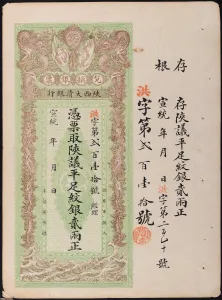 存根
存陝議平足紋銀貳兩正
宣統 年 月 日 洪字第二百十號
洪字第貳百壹拾號
兌換銀票
陝西大清銀行
洪字第貳百壹拾號
憑票取陝議平足紋銀貳兩正
宣統 年 月 日